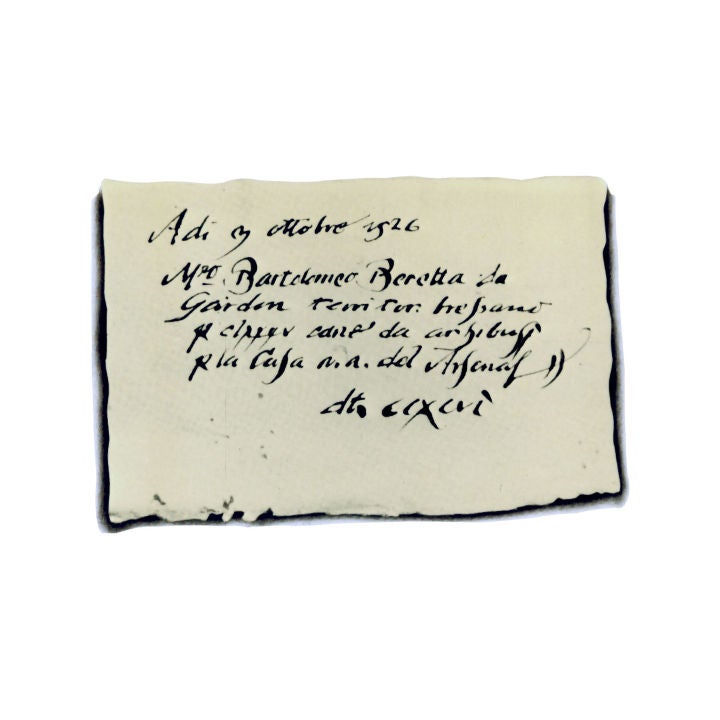 Adi 3 ottobre 1526
Mro. Bartolomeo Beretta da
Gardon territor: bressano
p clxxxv cane da archibusi
p la Casa n.a. del Arsenal
dt. ccxcvi